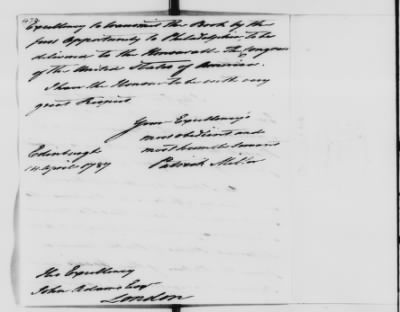 478
Excellency to transmit the Book by the
first Opportunity to Philadelphia to be
deliver'd to the Honourable The Congress
of the United States of America.
I have the Honour to be with very
great Respect
Your Excellency's
most obedient and
most humble servant
Edinburgh
14 April 1787
Patrick Miller
His Excellency
John Adams Esqr
London